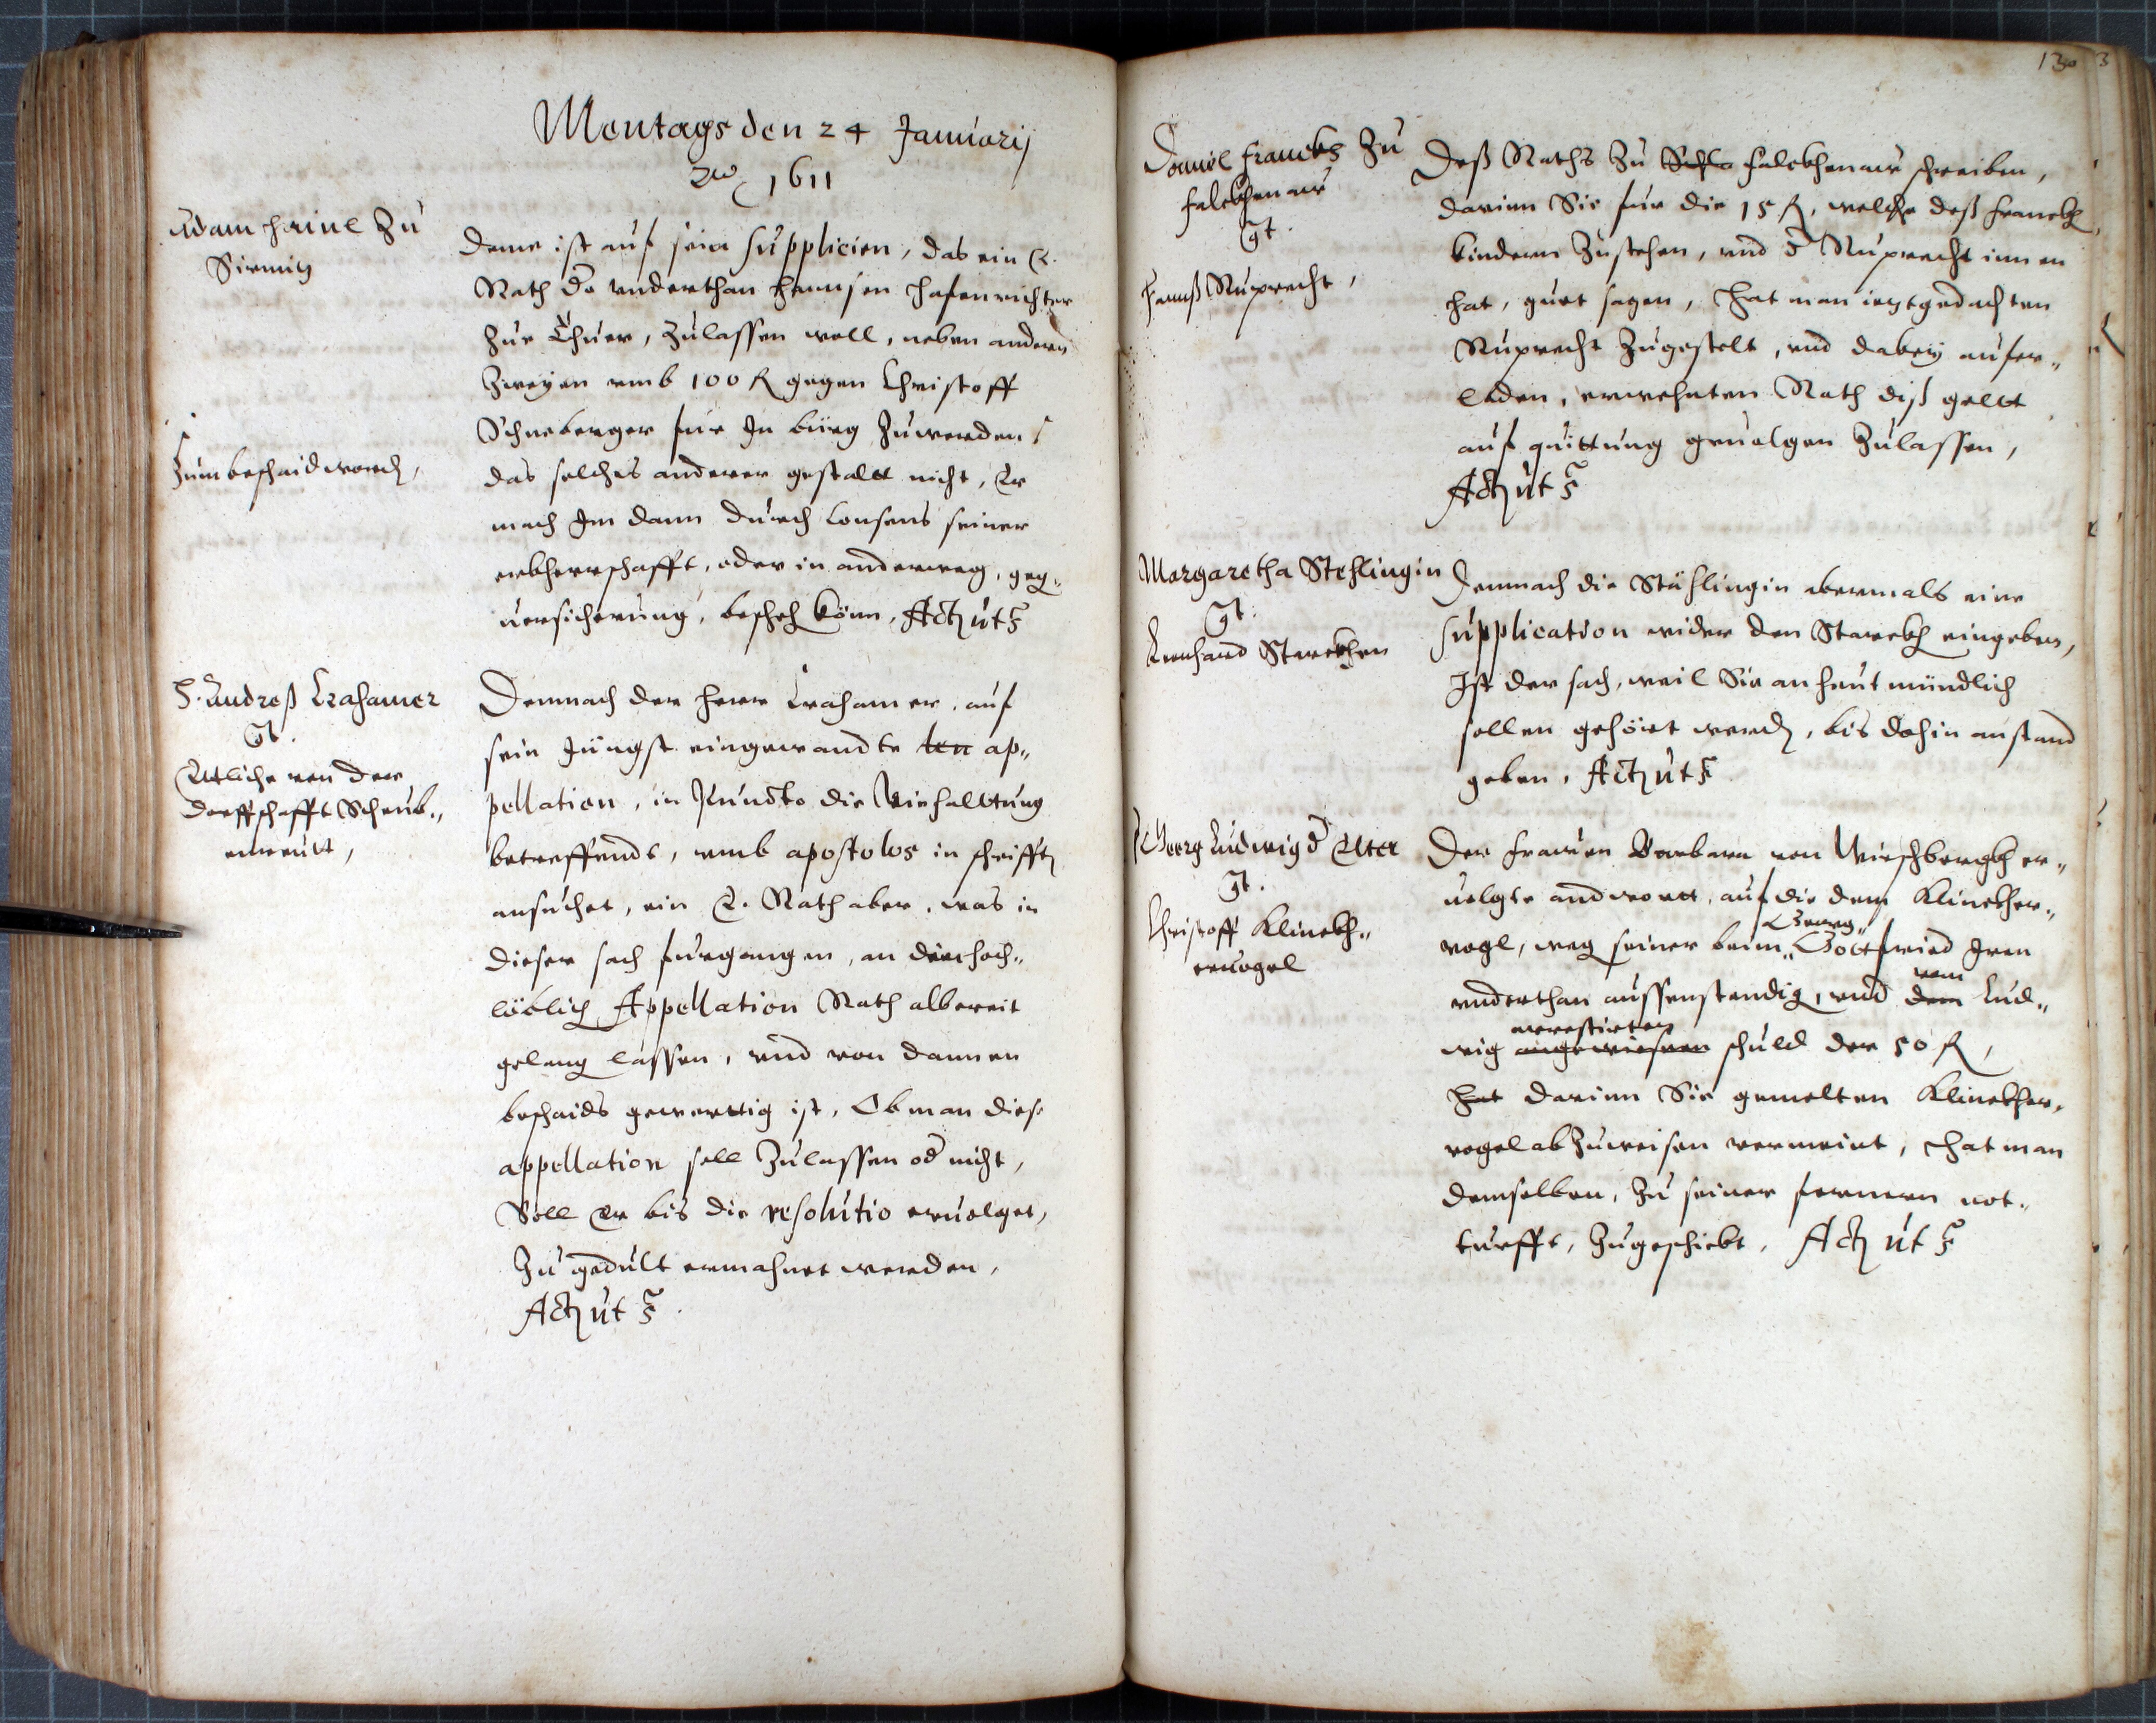 Montags den 24 Januarij
Ao 1611
Adam Haine Zu
Sirmitz
Deme ist auf sein supplicien, das ein E.
Rath do vnderthan Hannsen Hafenrichter
zur Thuer, Zulassen woll, neben andern
Zweyen vmb 100 fl gegen Christoff
Schneberger für In bürg Zuwerden
Zum beschaid word,
das solches anderer gestaltt nicht, Er
mach Im dann durch Consens seiner
erbherrschafft, oder in anderweg, geg„
uersicherung, bescheh könn, Act ut s
H. Andreß Crahamer
Ct.
Ettliche von der
dorffschafft Scheub„
enreutt,
Demnach der Herr Crahamer, auf
sein Jüngst eingewandte ten ap„
pellation, in Puncto die Viehalttung
betreffendt, vmb apostolos in schrifft
ansuchet, ein E. Rath aber, was in
dieser sach furgangen, an die hoch„
löblich Appellation Rath albereit
gelang lassen, vnd von dannen
beschaids gewerttig ist, Ob man diese
appellation soll Zulassen od nicht,
Soll Er bis die resolutio eruolget,
Zu gedult ermahnet werden,
Act ut s.
130 3
Daniel Francks Zu
Falckhenaw
Ct.
Hannß Ruprecht,
Deß Raths Zu Schla Falckhenaw schreiben,
darinn Sie fur die 15 fl, welche deß Franckh
kindern Zustehen, vnd d Ruprecht innen
hat, guet sagen, Hat man ieztgedachten
Ruprecht Zugestelt, vnd dabey aufer„
laden, erwehnten Rath diß geltt
auf quittung geuolgen Zulassen,
Act ut s
Margaretha Stehlingin
Ct.
Leonhard Starckhen
Demnach die Stählingin abermals eine
supplication wider den Starckh eingeben,
Ist der sach, weil Sie an heut mündlich
sollen gehört werd, bis dahin anstand
geben, Act ut s
Georg Ludwig d Elter
Ct.
Christoff Klinckh„
eruogel
Der Frauen Barbara von Wirschbergkh er„
uolgte andwortt, auf die dem Klinckher„
vogl, weg seiner beim Georg„ Gottfried Iren
vnderthan aussenstendig, vnd dem vom Lud„
wig angewiesnen arrestirten schuld der 50 fl,
hat darinn Sie gemelten Klinckher„
vogel abZuweisen vermeint, Hat man
demselben, Zu seiner fernern not„
turfft, Zugeschickt, Act ut s